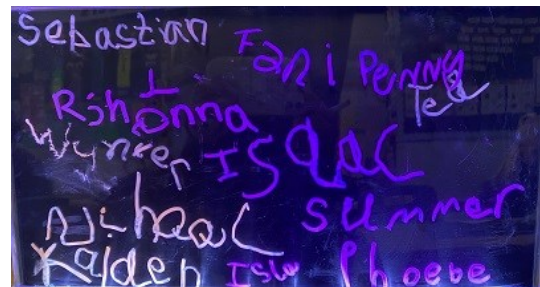 Sebastian
Fani Penny
Tea
Rihonna
Wynter
Isaac
Micheal
summer
Kaiden
Isla
Phoebe